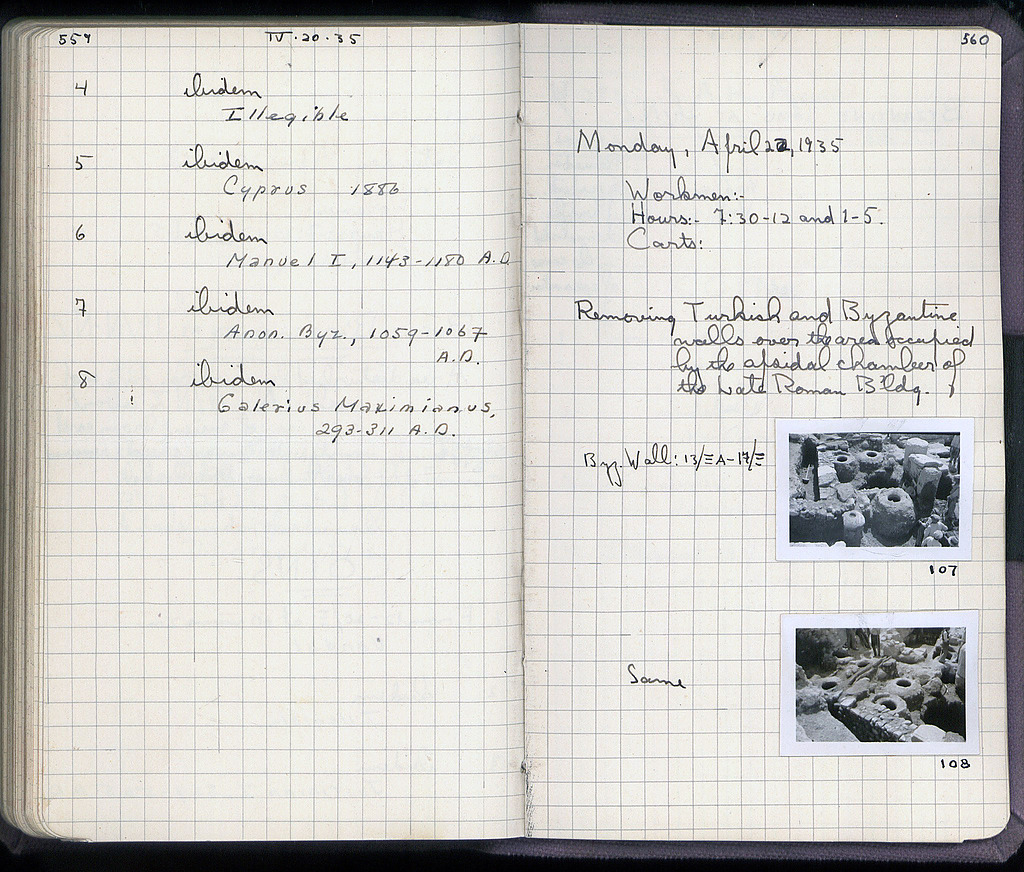 559
IV·20·35
4 ibidem
Illegible
5 ibidem
Cyprus 1886
6 ibidem
Manuel I, 1143-1180 A.D.
7 ibidem
Anon. Byz., 1059-1067
A.D.
8 ibidem
Galerius Maximianus,
293-311 A.D.
560
Monday, April 22, 1935
Workmen:-
Hours:- 7:30-12 and 1-5.
Carts:
Removing Turkish and Byzantine
walls over the area occupied
by the apsidal chamber of
the Late Roman Bldg.
Byz. Wall: 13/ΞA-17/Ξ
107
Same
108